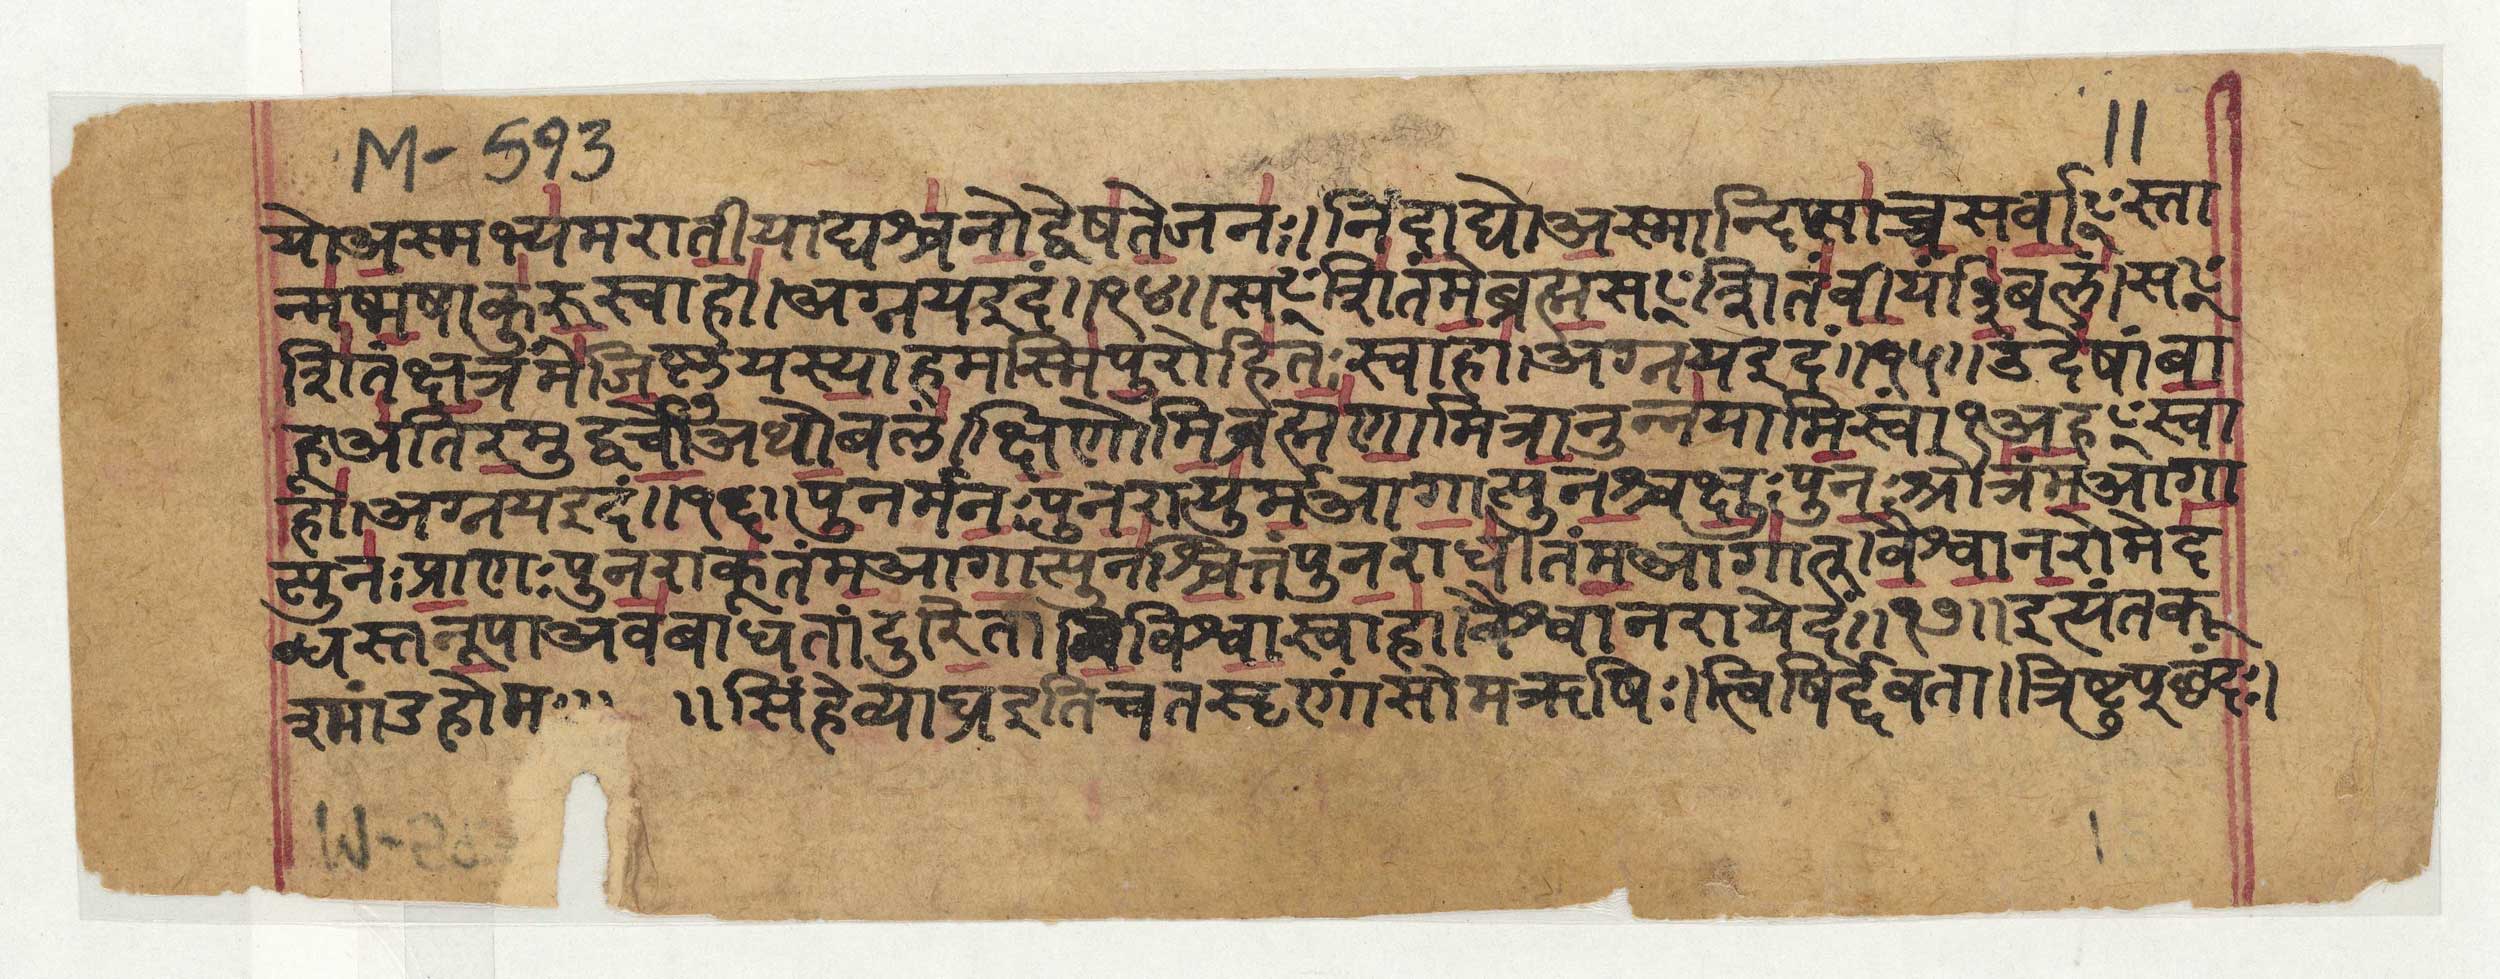 M-593
॥
योअस्मभ्यमरातीयाद्यश्चनोद्वेषतेजनः।निंदाद्योअस्मान्दिप्साच्चसर्वाꣳस्ता
न्मष्मषाकुरुस्वाहा।अग्नयइदं॥१४॥सꣳशितंमेब्रह्मसꣳशितंवीर्यंबलं।सꣳ
शितंक्षत्रंमेजिष्णुयस्याहमस्मिपुरोहितःस्वाहा।अग्नयइदं॥१५॥उदेषांबा
हूअतिरमुद्वर्चोअथोबलं।क्षिणोमिब्रह्मणामित्रानुन्नयामिस्वां१अहꣳस्वा
हा।अग्नयइदं॥१६॥पुनर्मनःपुनरायुर्मआगात्पुनश्चक्षुःपुनःश्रोत्रंमआगा
त्पुनःप्राणःपुनराकूतंमआगात्पुनश्चित्तंपुनराधीतंमआगात्।वैश्वानरोमेद
ब्धस्तनूपाअवबाधतांदुरितानिविश्वास्वाहा।वैश्वानरायेदं॥१७॥इत्यंतकू
ष्मांडहोमः॥ ॥सिंहेव्याघ्रइतिचतसृणांसोमऋषिः।त्विषिर्द्देवता।त्रिष्टुप्छंदः।